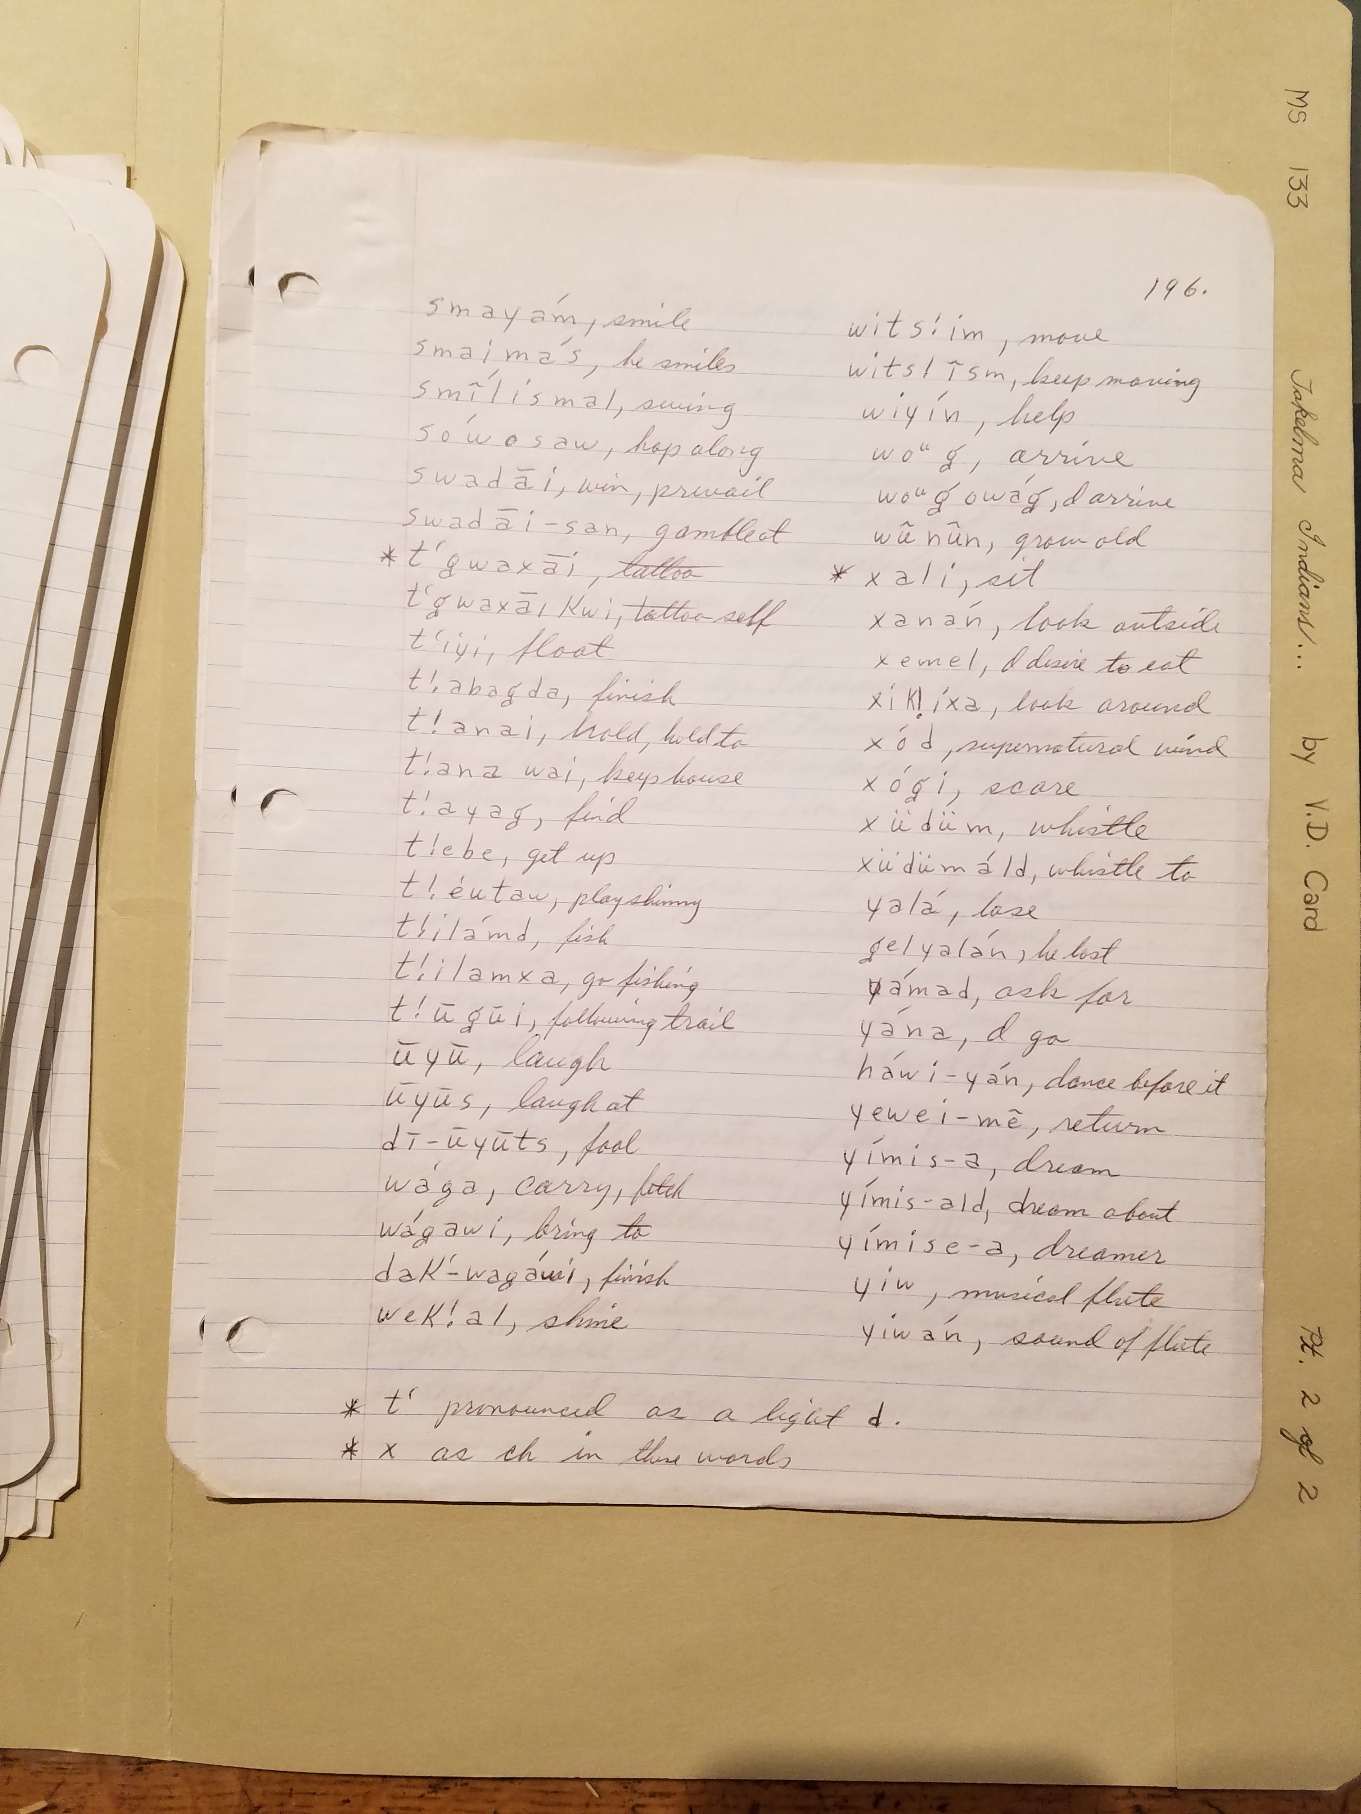 196.
smayám, smile
smaimás, he smiles
smîĺismal, swing
sówosaw, hop along
swadāi, win, prevail
swadāi-san, gamble at
* t'gwaxāi, tattoo
t'gwaxāikwi, tattoo self
t'iyi, float
t!abagda, finish
t!anai, hold, hold to
t!ana wai, keep house
t!ayag, find
t!ebe, get up
t!éutaw, play shinny
t!ilámd, fish
t!ilamxa, go fishing
t!ūgūi, following trail
ūyū, laugh
ūyūs, laugh at
dī-ūyūts, fool
wága, carry, fetch
wágawi, bring to
dak'-wagáwi, finish
wek!al, shine
wits!im, move
wits!īsm, keep moving
wiyín, help
woᵘǵ, arrive
woᵘǵowág, I arrive
wûnûn, grow old
* xali, sit
xanán, look outside
xemel, I desire to eat
xik!ixa, look around
xód, supernatural wind
xógi, scare
xüdüm, whistle
xüdümáld, whistle to
yalá, lose
gelyalán, he lost
yámad, ask for
yána, I go
háwi-yán, dance before it
yewei-mē, return
yímis-a, dream
yímis-ald, dream about
yímise-a, dreamer
yiw, musical flute
yiwán, sound of flute
* t' pronounced as a light d.
* x as ch in these words
MS 133 Takelma Indians... by V.D. Card Pt. 2 of 2